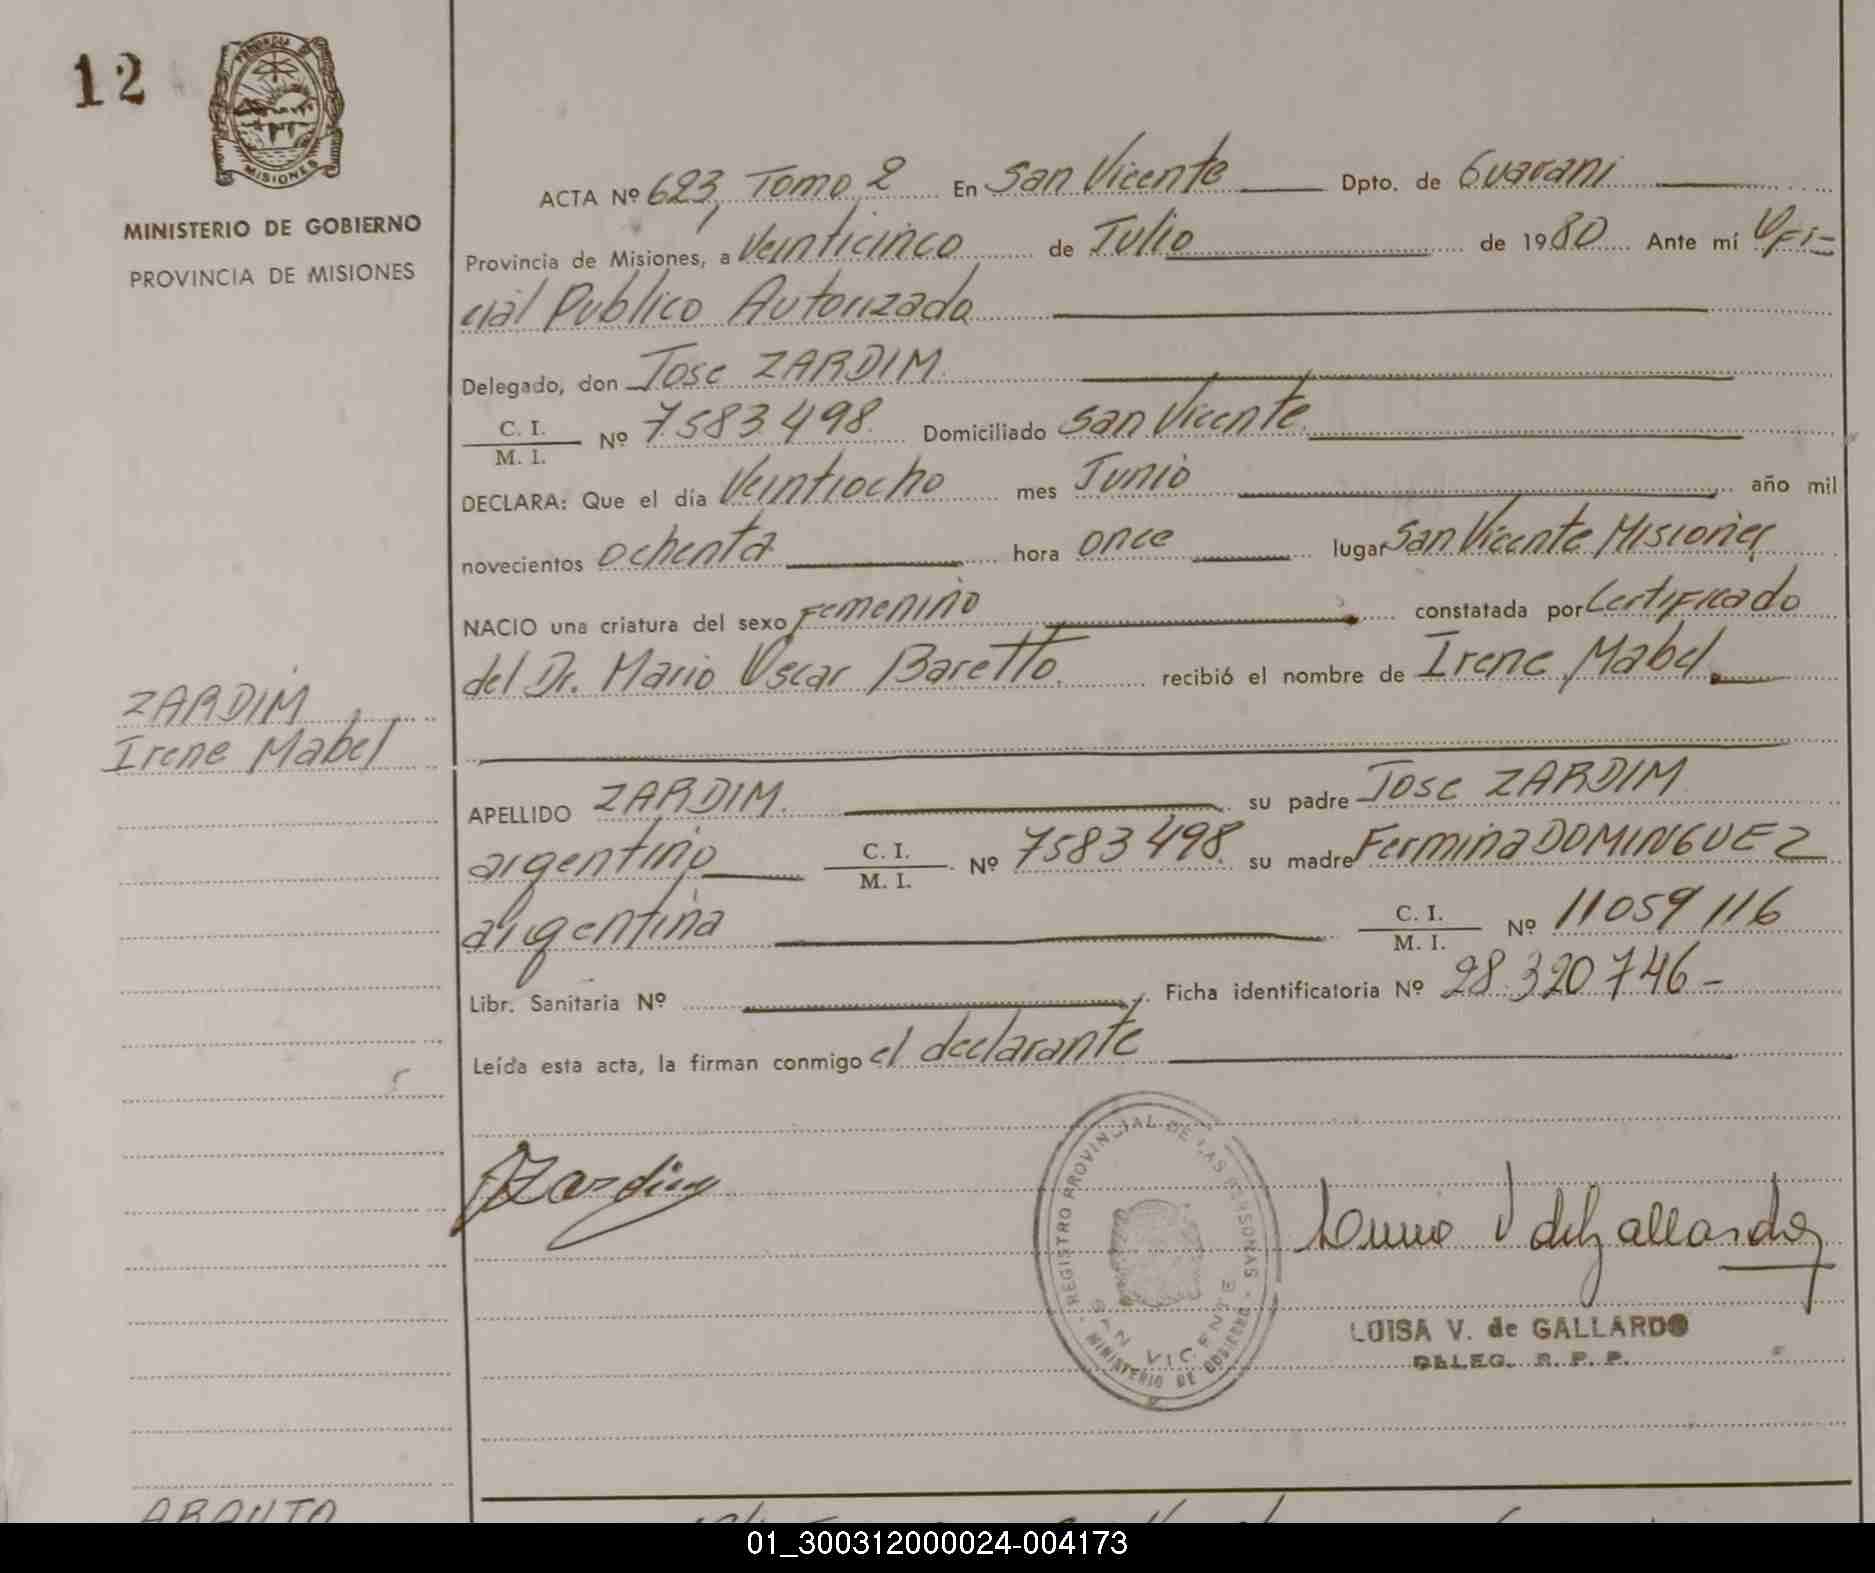 12
PROVINCIA DE
MISIONES
MINISTERIO DE GOBIERNO
PROVINCIA DE MISIONES
ACTA Nº 623, Tomo 2 En San Vicente Dpto. de Guarani
Provincia de Misiones, a Veinticinco de Julio de 1980 Ante mí Ofi-
cial Publico Autorizado
Delegado, don Jose ZARDIM.
C. I.
M. I. Nº 7583498. Domiciliado San Vicente.
DECLARA: Que el día Veintiocho mes Junio año mil
novecientos Ochenta hora once lugar San Vicente Misiones
NACIO una criatura del sexo Femenino constatada por Certificado
del Dr. Mario Oscar Baretto. recibió el nombre de Irene Mabel
ZARDIM
Irene Mabel
APELLIDO ZARDIM. su padre Jose ZARDIM
argentino C. I.
M. I. Nº 7583498. su madre Fermina DOMINGUEZ
argentina C. I.
M. I. Nº 11059116
Libr. Sanitaria Nº Ficha identificatoria Nº 28.320746-
Leída esta acta, la firman conmigo el declarante
Zardim
REGISTRO PROVINCIAL DE LAS PERSONAS
SAN VICENTE
MINISTERIO DE GOBIERNO
LUISA V. de GALLARDO
DELEG. R. P. P.
01_300312000024-004173